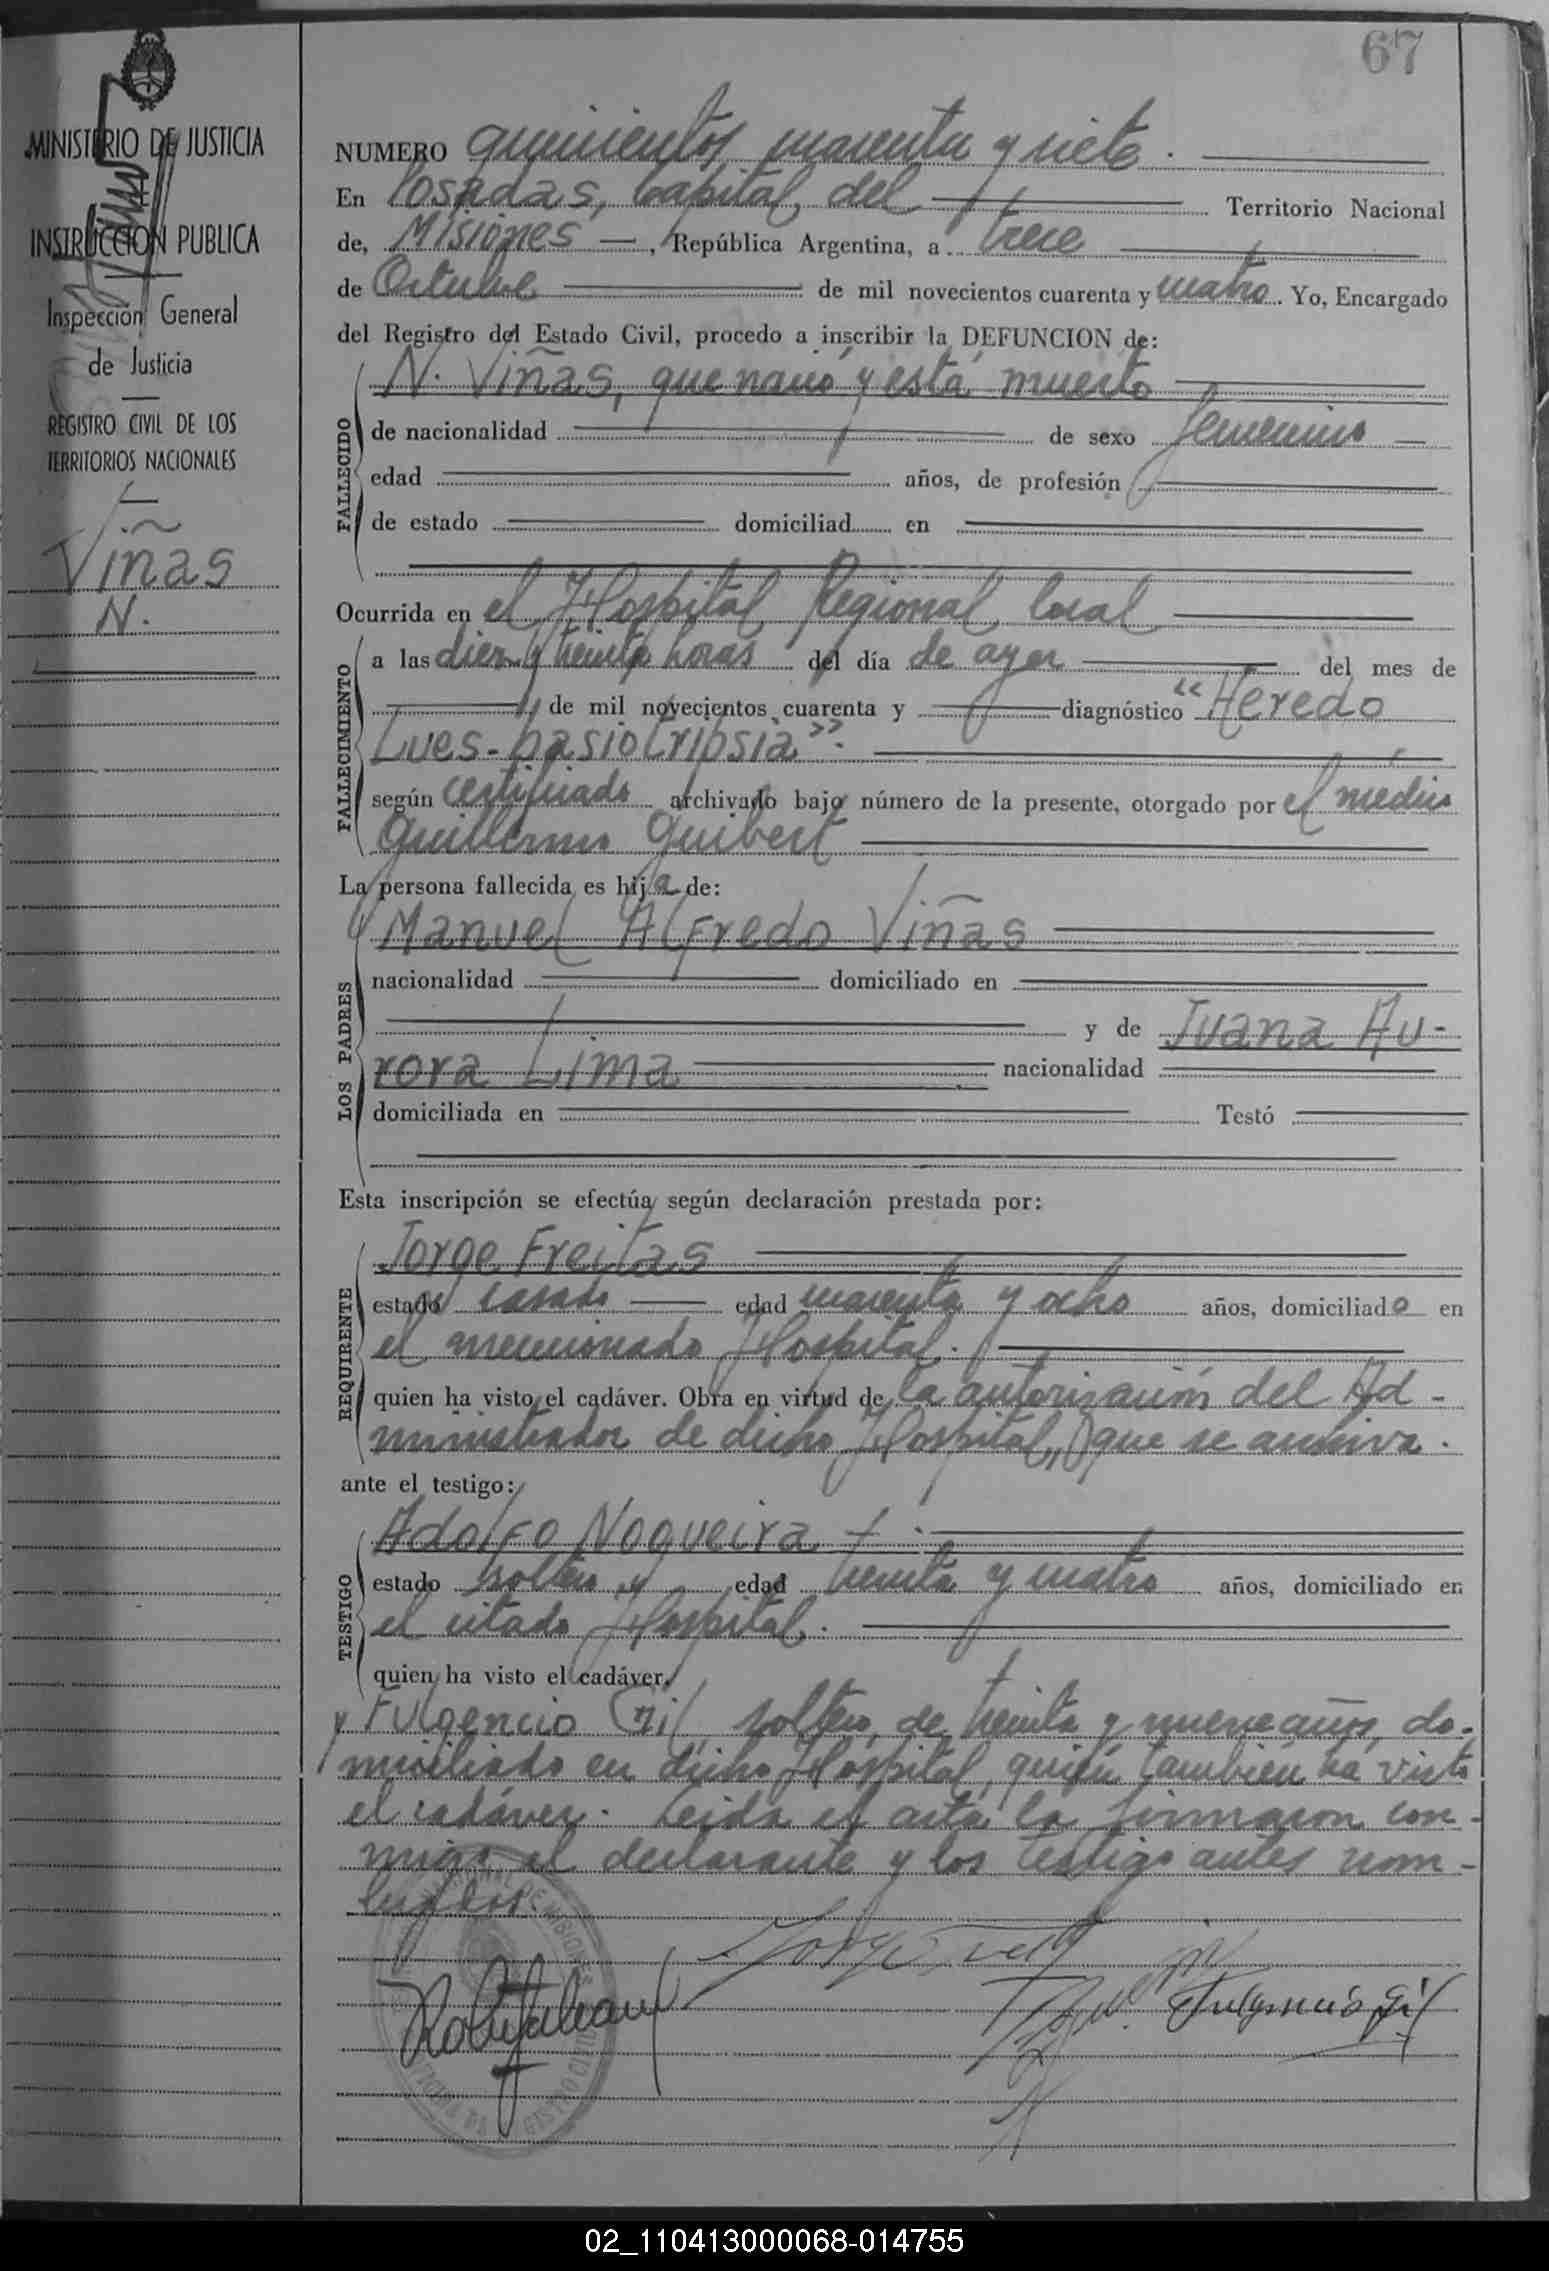 67
MINISTERIO DE JUSTICIA
INSTRUCCION PUBLICA
Inspección General
de Justicia
REGISTRO CIVIL DE LOS
TERRITORIOS NACIONALES
Viñas
N.
NUMERO quinientos cuarenta y siete.
En Posadas, Capital del Territorio Nacional
de, Misiones, República Argentina, a trece
de Octubre de mil novecientos cuarenta y cuatro. Yo, Encargado
del Registro del Estado Civil, procedo a inscribir la DEFUNCION de:
FALLECIDO
N. Viñas, que nació y está muerto
de nacionalidad de sexo femenino
edad años, de profesión
de estado domiciliad en
Ocurrida en el Hospital Regional local
FALLECIMIENTO
a las diez y treinta horas del día de ayer del mes de
de mil novecientos cuarenta y diagnóstico "Heredo
Lues-basiotripsia".
según certificado archivado bajo número de la presente, otorgado por el médico
Guillermo Guibert
La persona fallecida es hija de:
LOS PADRES
Manuel Alfredo Viñas
nacionalidad domiciliado en
y de Juana Au-
rora Lima nacionalidad
domiciliada en Testó
Esta inscripción se efectúa según declaración prestada por:
REQUIRENTE
Jorge Freitas
estado casado edad cuarenta y ocho años, domiciliado en
el mencionado Hospital.
quien ha visto el cadáver. Obra en virtud de la autorización del Ad-
ministrador de dicho Hospital, que se archiva.
ante el testigo:
TESTIGO
Adolfo Nogueira
estado soltero edad treinta y cuatro años, domiciliado en
el citado Hospital.
quien ha visto el cadáver.
y Fulgencio Gil, soltero, de treinta y nueve años, do-
miciliado en dicho Hospital, quien también ha visto
el cadáver. Leída el acta la firmaron con-
migo el declarante y los testigo antes nom-
brados.
Fulgencio Gil
02_110413000068-014755